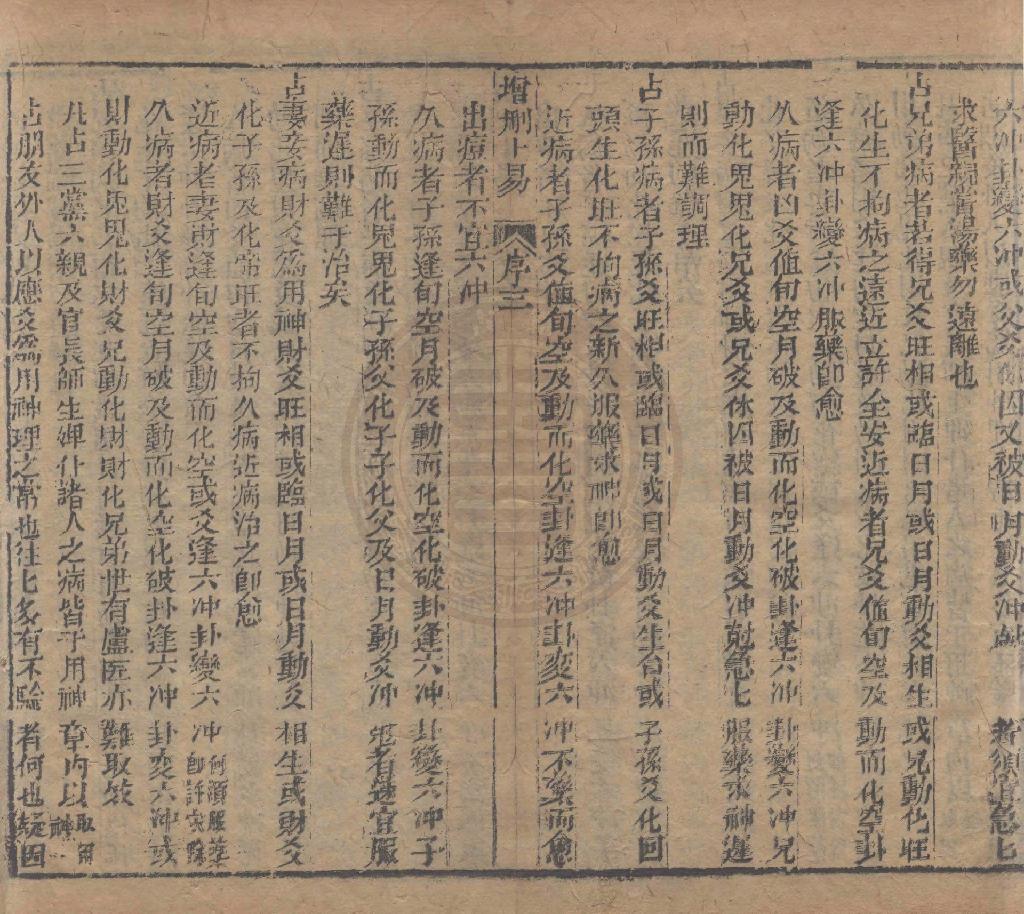 六冲卦變六冲或父爻休囚又被日月動爻冲尅者須宜急七
求醫親嘗湯藥勿遠離也
占兄弟病者若得兄爻旺相或臨日月或日月動爻相生或兄動化旺
化生不拘病之遠近立許全安近病者兄爻值旬空及動而化空卦
逢六冲卦變六冲服藥卽愈
久病者凶爻值旬空月破及動而化空化破卦逢六冲卦變六冲兄
動化鬼鬼化兄爻或兄爻休囚被日月動爻冲尅急七服藥求神遲
則而難調理
占子孫病者子孫爻旺相或臨日月或日月動爻生合或子孫爻化回
頭生化旺不拘病之新久服藥求神卽愈
近病者子孫爻值旬空及動而化空卦逢六冲卦変六冲不藥而愈
增刪卜易 序 三
出痘者不宜六冲
久病者子孫逢旬空月破及動而化空化破卦逢六冲卦變六冲子
孫動而化鬼鬼化子孫父化子子化父及日月動爻冲尅者速宜服
藥遲則難于治矣
占妻妾病財爻爲用神財爻旺相或臨日月或日月動爻相生或財爻
化子孫及化帝旺者不拘久病近病治之卽愈
近病者妻財逢旬空及動而化空或爻逢六冲卦變六冲何須服藥卽許災除
久病者財爻逢旬空月破及動而化空化破卦逢六冲卦変六冲或
財動化鬼鬼化財爻兄動化財財化兄弟世有盧医亦難取效
凡占三黨六親及官長師生婢仆諸人之病皆于用神章内以取用神
占朋友外人以應爻爲用神理之常也往七多有不驗者何也疑因